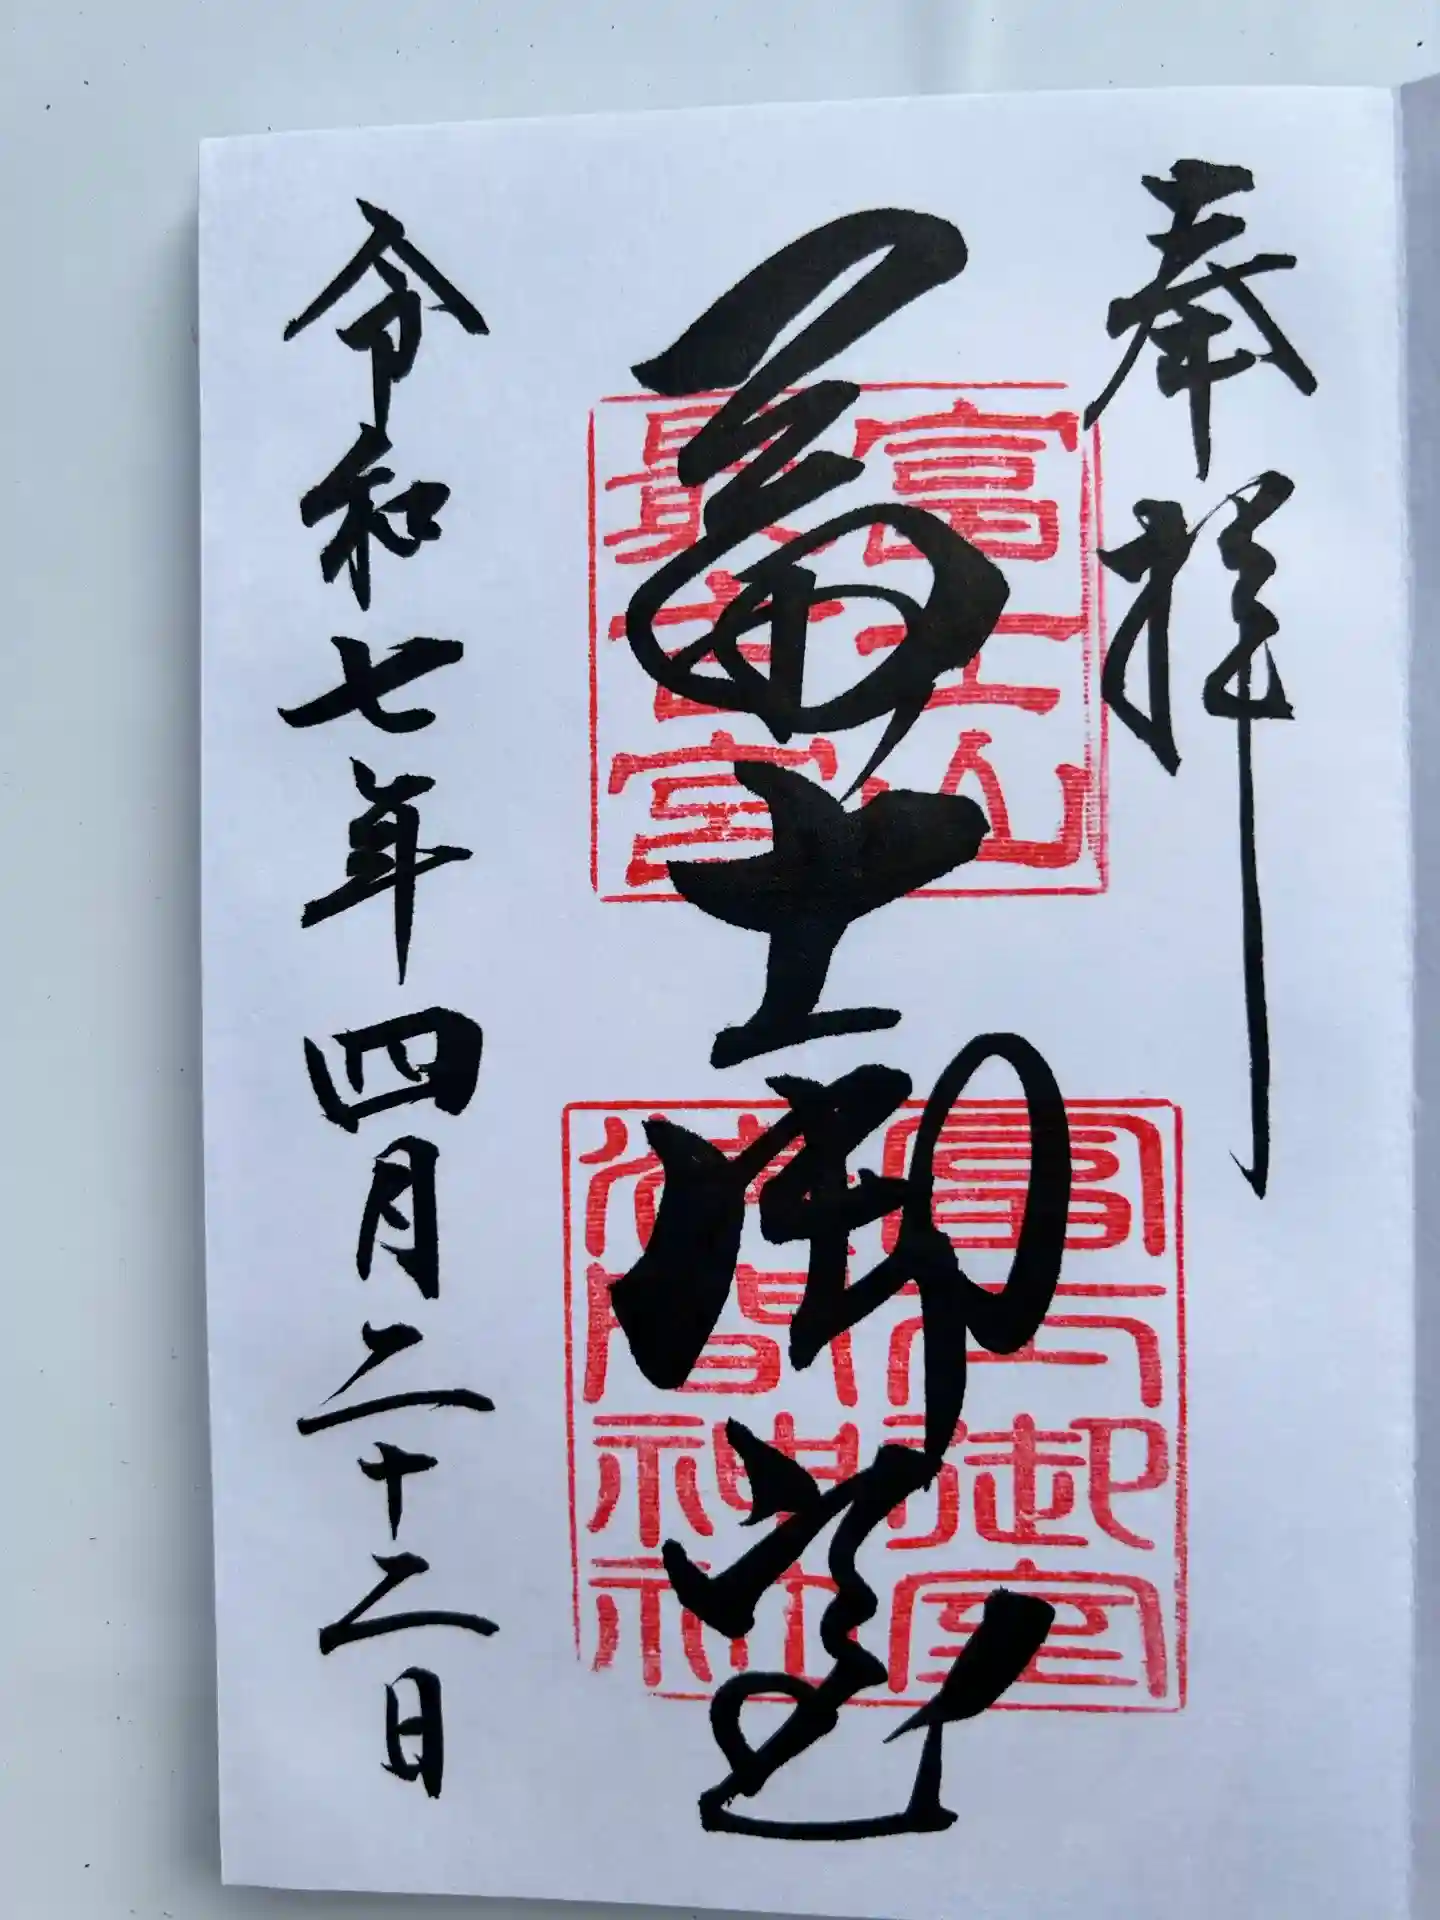 奉拝
冨士御室
富士山
最古宮
冨士御室
淺間神社
令和七年四月二十二日